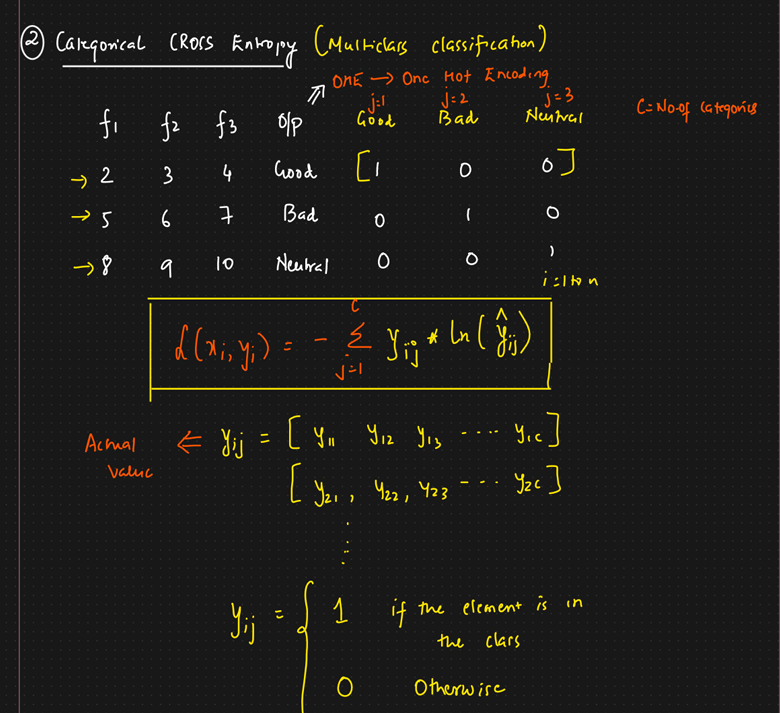 ② Categorical CROSS Entropy (Multiclass classification)
OHE → One Hot Encoding
j=1 j=2 j=3
f1 f2 f3 O/P Good Bad Neutral C=No. of categories
→ 2 3 4 Good [1 0 0]
→ 5 6 7 Bad 0 1 0
→ 8 9 10 Neutral 0 0 1
i=1 to n
L(xi, yi) = - Σ_{j=1}^{C} yij * ln(ŷij)
Actual value ⇐ yij = [y11 y12 y13 ---- y1c]
[y21, y22, y23 --- y2c]
⋮
yij = { 1 if the element is in
the class
0 Otherwise